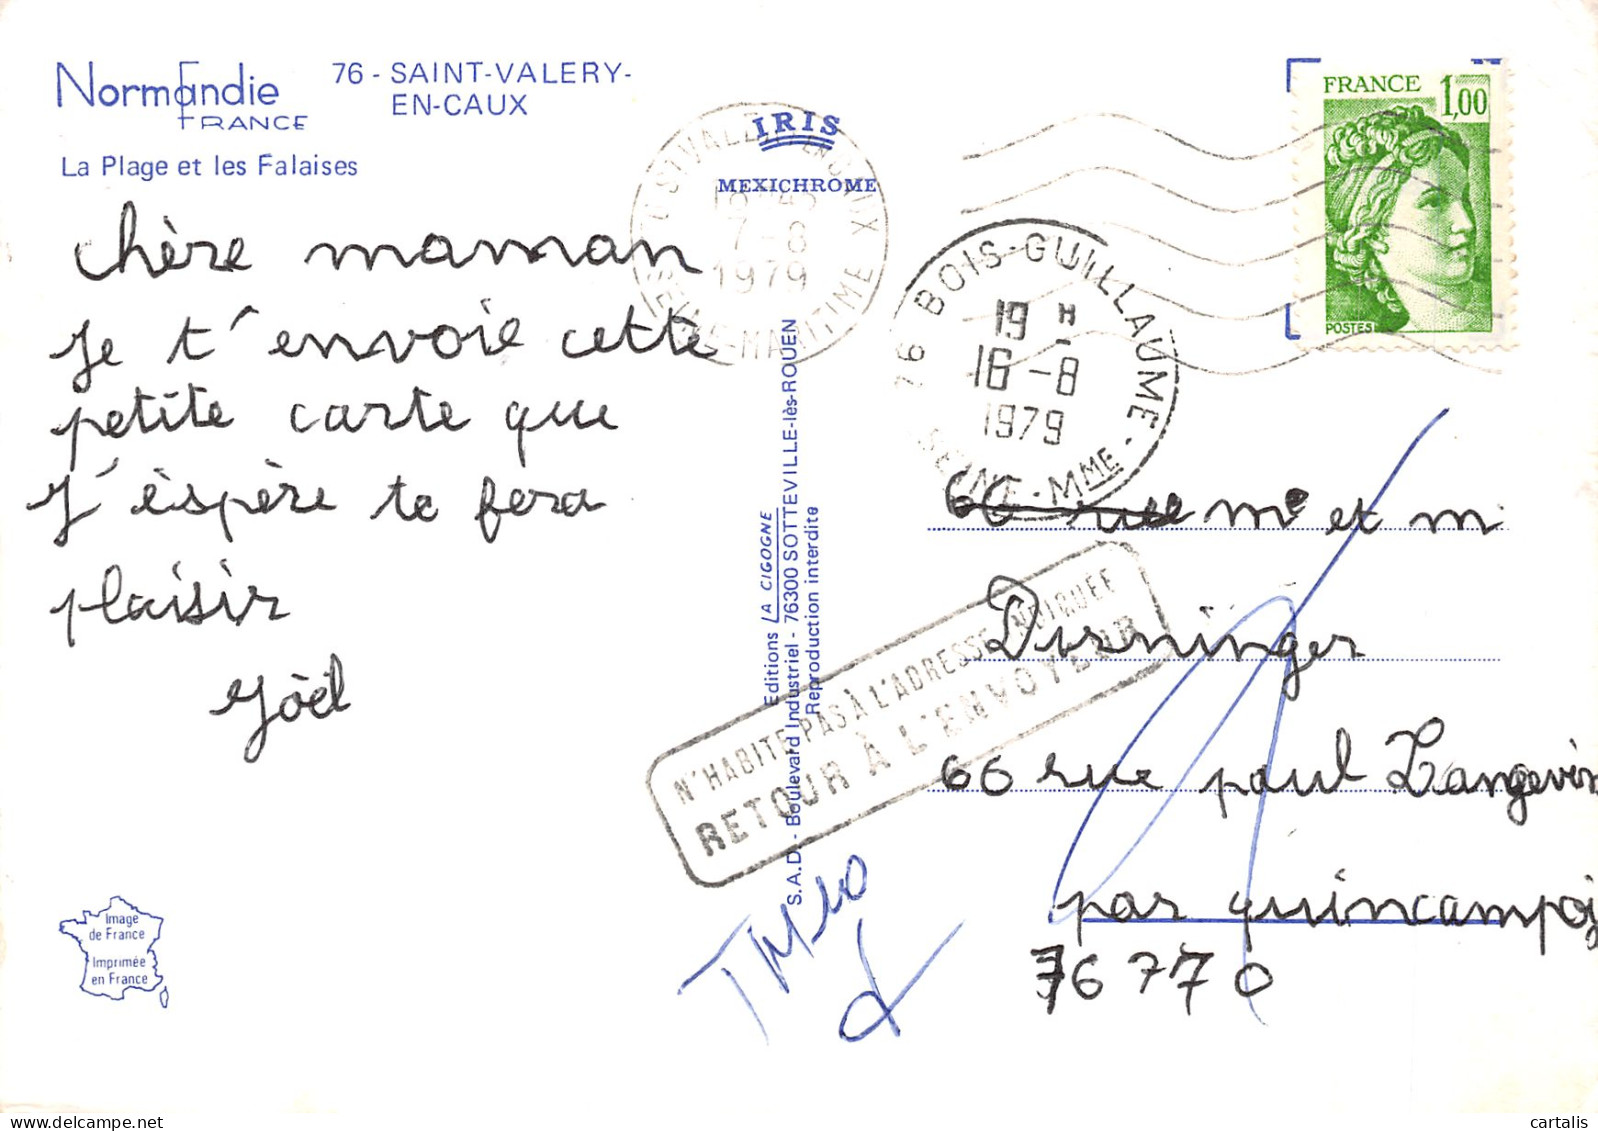 Normandie
FRANCE
76 - SAINT-VALERY-
EN-CAUX
La Plage et les Falaises
chère maman
Je t'envoie cette
petite carte que
J'éspère te fera
plaisir
Joël
Image
de France
Imprimée
en France
IRIS
MEXICHROME
EN CAUX
7-8
1979
SEINE-MARITIME
Editions LA CIGOGNE
S.A.D. - Boulevard Industriel - 76300 SOTTEVILLE-lès-ROUEN
Reproduction interdite
76 BOIS-GUILLAUME
19 H
16-8
1979
SEINE-MME
FRANCE 1,00
POSTES
66 rue me et m
Durninger
66 rue paul Langevin
par quincampoix
76770
N'HABITE PAS À L'ADRESSE INDIQUÉE
RETOUR À L'ENVOYEUR
cartalis.com